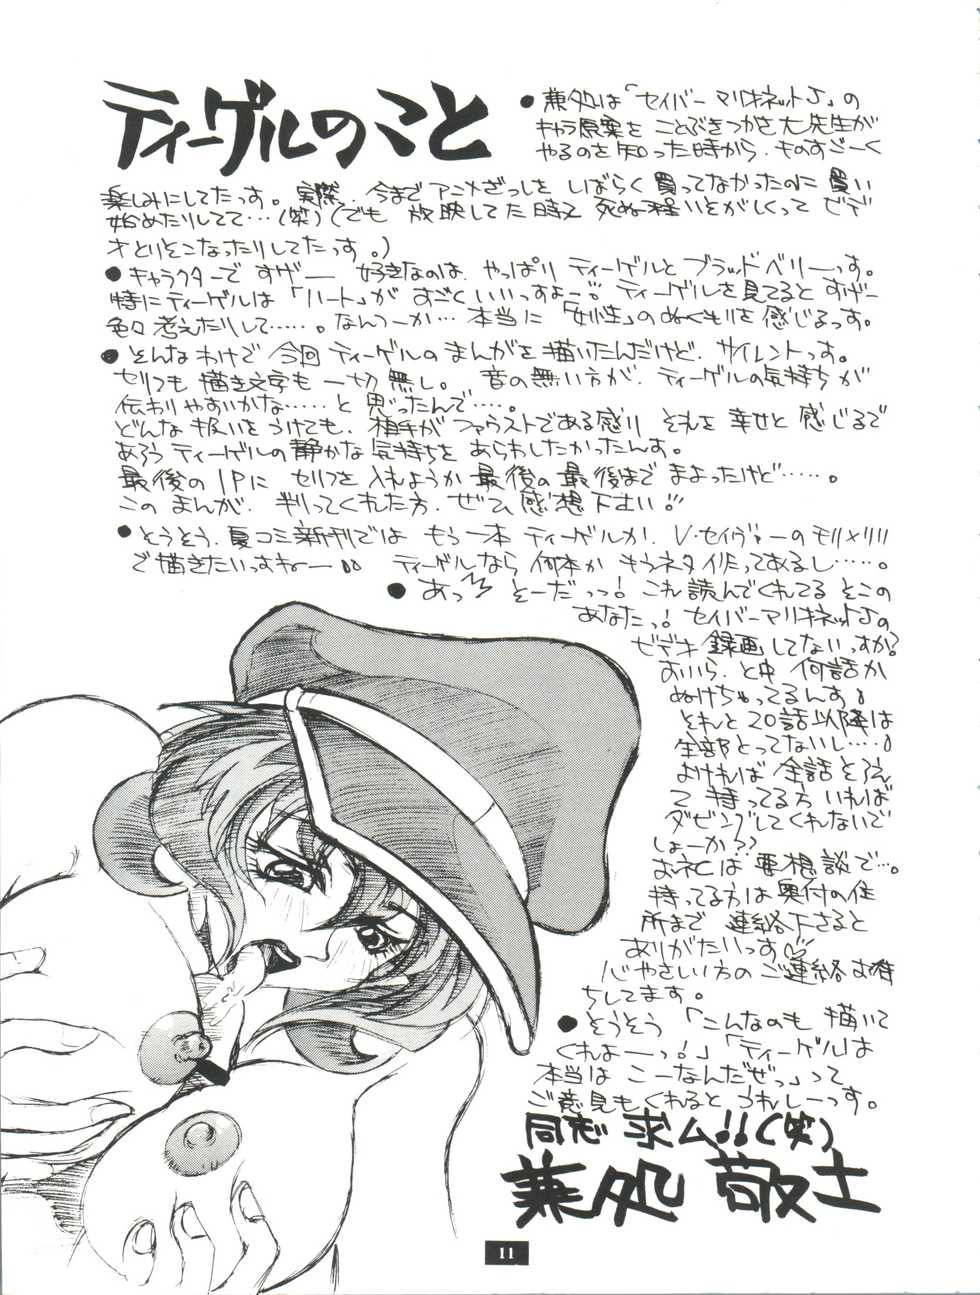 ティーゲルのこと
●兼処は「セイバーマリオネットJ」の
キャラ原案をことぶきつかさ大先生が
やるのを知った時から、ものすごーく
楽しみにしてたっす。実際、今までアニメざっしをしばらく買ってなかったのに買い
始めたりしてて…(笑)(でも放映してた時って死ぬ程いそがしくってビデ
オとりそこなったりしてたっす。)
●キャラクターですげー好きなのは、やっぱりティーゲルとブラッドベリーっす。
特にティーゲルは「ハート」がすごくいいっすよー!!ティーゲルを見てるとすげー
色々考えたりして……。なんつーか…本当に「女性」のぬくもりを感じるっす。
●そんなわけで今回ティーゲルのまんがを描いたんだけど、サイレントっす。
セリフも描き文字も一切無し。音の無い方が、ティーゲルの気持ちが
伝わりやすいかな……と思ったんで…。
どんな扱いをうけても、相手がファウストである限りそれを幸せと感じるで
あろうティーゲルの静かな気持ちをあらわしたかったんす。
最後の1Pにセリフを入れようか最後の最後までまよったけど……。
このまんが、判ってくれた方、ぜひ感想下さい!!
●そうそう、夏コミ新刊ではもう一本ティーゲルか、V・セイヴァーのモリ×リリ
で描きたいっすねー!! ティーゲルなら何本かもうネタ作ってあるし……。
●あっ そーだっ!これ読んでくれてるそこの
あなたっ!セイバーマリオネットJの
ビデオ録画してないっすか?
おいら、と中何話か
ぬけちゃってるんす!
それと20話以降は
全部とってないし…!
よければ全話そろえ
て持ってる方いれば
ダビングしてくれないで
しょーか??
お礼は要相談で…。
持ってる方は奥付の住
所まで連絡下さると
ありがたいっす♡
心やさしい方のご連絡お待
ちしてます。
●そうそう「こんなのも描いて
くれよーっ!」「ティーゲルは
本当はこーなんだぜっ」って
ご意見もくれるとうれしーっす。
同志求ム!!(笑)
兼処敬士
11